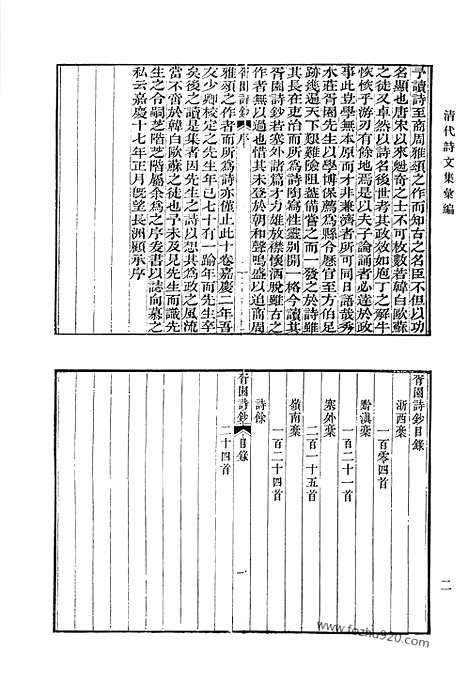 清代詩文集彙編
予讀詩至商周雅頌之作而知古之名臣不但以功
名顯也唐宋以來魁奇之士不可枚數若韓白歐蘇
之徒又卓然以詩名後世考其政教如庖丁之解牛
恢恢乎游刃有餘地焉是以夫子論誦者必達於政
事此豈學無本原而才非兼濟者所可同日語哉秀
水莊胥園先生以學博保薦爲縣令歷官至方伯足
跡幾遍天下艱難險阻葢備嘗之而一發之於詩雖
其長在吏治而所爲詩陶寫性靈别開一格今讀其
胥園詩鈔若塞外諸篇才力雄放襟懷洒脫雖古之
作者無以過也惜其未登於朝和聲鳴盛以追商周
胥園詩鈔 序
雅頌之作者而所爲詩亦僅止此十卷嘉慶二年吾
友少卿校定之先生年已七十有一踰年而先生卒
矣後之讀是集者因先生之詩以想其爲政之風流
當不啻於韓白歐蘇之徒也予未及見先生而識先
生之令嗣芝階芝階屬余爲之序爰書以誌向慕之
私云嘉慶十七年正月旣望長洲顧承序
胥園詩鈔目錄
浙西槀
一百零四首
黔滇槀
一百二十一首
塞外槀
二百一十五首
嶺南槀
一百二十四首
詩餘
二十四首
胥園詩鈔 目錄
一
二
www.fozhu920.com